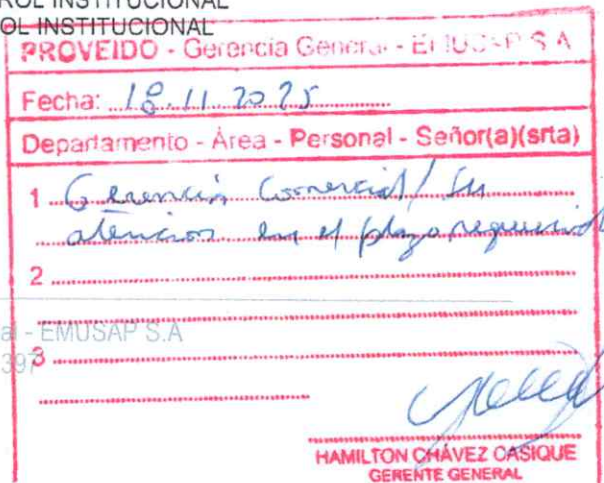 ROL INSTITUCIONAL
OL INSTITUCIONAL
PROVEIDO - Gerencia General - EMUSAP S.A
Fecha: 18.11.2025
Departamento - Área - Personal - Señor(a)(srta)
1 Gerencia Comercial / Su
atención en el plazo requerido
2
al - EMUSAP S.A
397
3
HAMILTON CHÁVEZ CASIQUE
GERENTE GENERAL